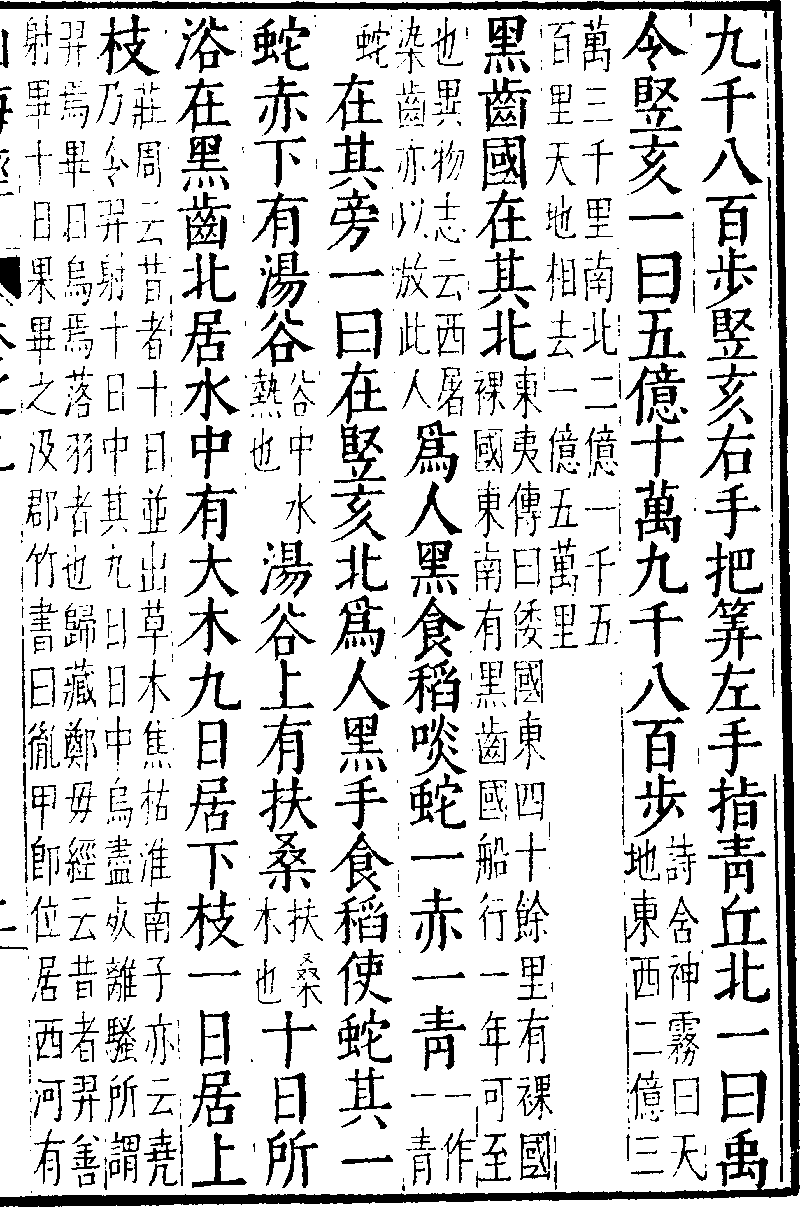 九千八百步竪亥右手把筭左手指青丘北一曰禹
令竪亥一曰五億十萬九千八百步詩含神霧曰天地東西二億三
萬三千里南北二億一千五百里天地相去一億五萬里
黑齒國在其北東夷傳曰倭國東四十餘里有裸國裸國東南有黑齒國船行一年可至
也異物志云西屠染齒亦以放此人爲人黑食稻啖蛇一赤一青一作一青
蛇在其旁一曰在竪亥北爲人黑手食稻使蛇其一
蛇赤下有湯谷谷中水熱也湯谷上有扶桑扶桑木也十日所
浴在黑齒北居水中有大木九日居下枝一日居上
枝莊周云昔者十日並出草木焦枯淮南子亦云堯乃令羿射十日中其九日日中烏盡死離騷所謂
羿焉畢日烏焉落羽者也歸藏鄭毋經云昔者羿善射畢十日果畢之汲郡竹書曰胤甲卽位居西河有